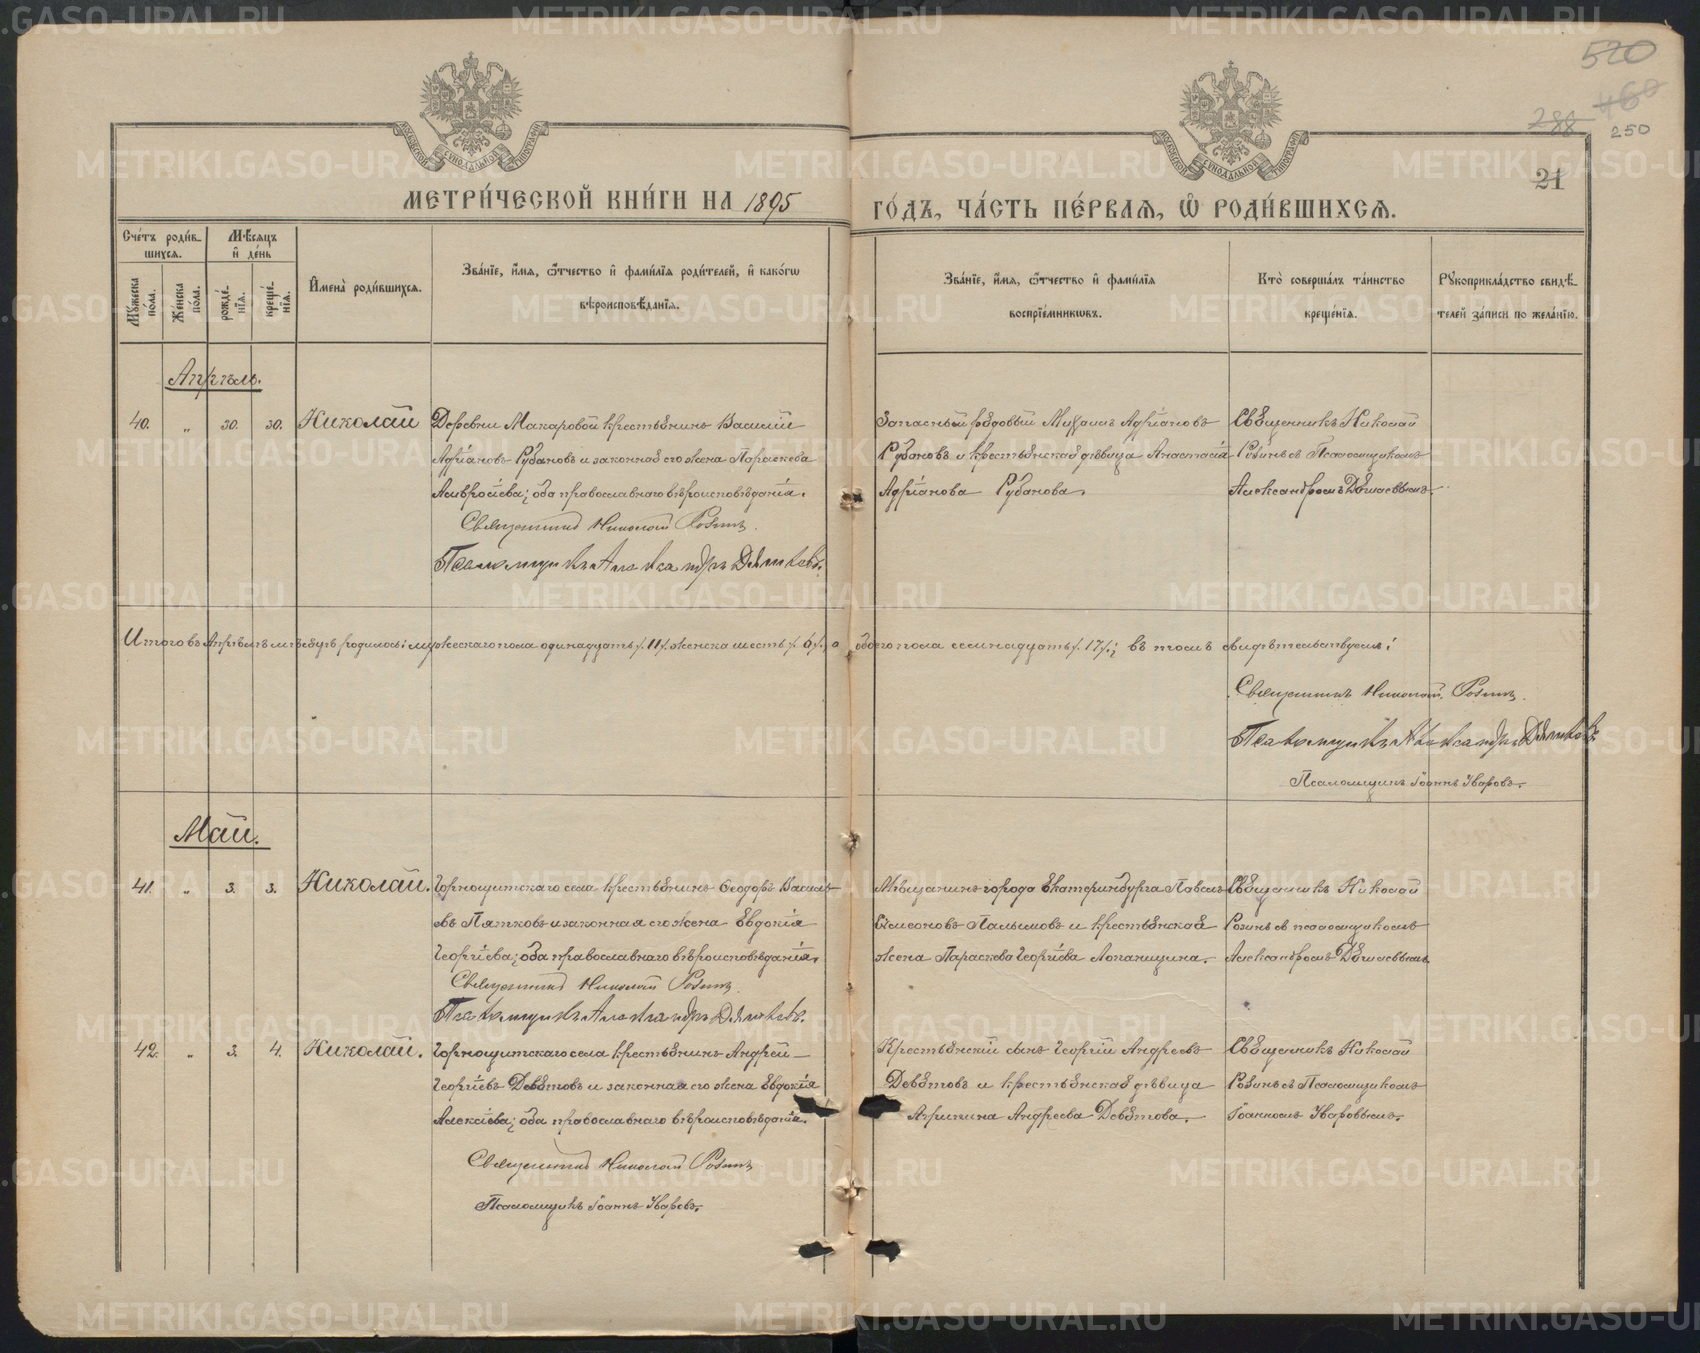 520
460
288
250
21
МОСКОВСКОЙ СѴНОДАЛЬНОЙ ТИПОГРАФІИ
МОСКОВСКОЙ СѴНОДАЛЬНОЙ ТИПОГРАФІИ
МЕТРИ́ЧЕСКОЙ КНИ́ГИ НА 1895 ГО́ДЪ, ЧА́СТЬ ПЕ́РВАѦ, Ѡ҆ РОДИ́ВШИХСѦ.
Сче́тъ роди́вшихсѧ.
Мѣ́сѧцъ и҆ де́нь
Мꙋ́жеска по́ла.
Же́нска по́ла.
рожде́нїѧ.
креще́нїѧ.
И҆мена̀ роди́вшихсѧ.
Зва́нїе, и҆́мѧ, ѻ҆́тчество и҆ фами́лїѧ роди́телей, и҆ како́гѡ
вѣроисповѣ́данїѧ.
Зва́нїе, и҆́мѧ, ѻ҆́тчество и҆ фами́лїѧ
воспрїе́мникѡвъ.
Кто̀ соверша́лъ та́инство
креще́нїѧ.
Рꙋкоприкла́дство свидѣ́телей за́писи по жела́нїю.
Апрѣль.
40. „ 30. 30. Николай
Деревни Макаровой крестьянинъ Василій
Адріановъ Рубановъ и законная его жена Параскева
Амвросіева; оба православнаго вѣроисповѣданія.
Священникъ Николай
Псаломщикъ Александръ
Запасный рядовый Михаилъ Адріановъ
Рубановъ и крестьянская дѣвица Анастасія
Адріанова Рубанова.
Священникъ Николай
съ Псаломщикомъ
Александромъ
Итого въ Апрѣлѣ мѣсяцѣ родилось: мужескаго пола одинадцать /. 11 /. женска шесть /. 6 /. а обоего пола семнадцать /. 17 /.; въ томъ свидѣтельствуемъ:
Священникъ Николай
Псаломщикъ Александръ
Псаломщикъ Іоаннъ Уваровъ.
Май.
41. „ 3. 3. Николай.
Горнощитскаго села крестьянинъ Ѳеодоръ Василь-
евъ Пятковъ и законная его жена Евдокія
Георгіева; оба православнаго вѣроисповѣданія.
Священникъ Николай
Псаломщикъ Александръ
Мѣщанинъ города Екатеринбурга Павелъ
Симеоновъ Палымовъ и крестьянская
жена Параскева Георгіева Лопатина.
Священникъ Николай
съ псаломщикомъ
Александромъ
42. „ 3. 4. Николай.
Горнощитскаго села крестьянинъ Андрей
Георгіевъ Девятовъ и законная его жена Евдокія
Алексіева; оба православнаго вѣроисповѣданія.
Священникъ Николай
Псаломщикъ Іоаннъ Уваровъ.
Крестьянскій сынъ Георгій Андреевъ
Девятовъ и крестьянская дѣвица
Агрипина Андреева Девятова.
Священникъ Николай
съ Псаломщикомъ
Іоанномъ Уваровымъ.
METRIKI.GASO-URAL.RU